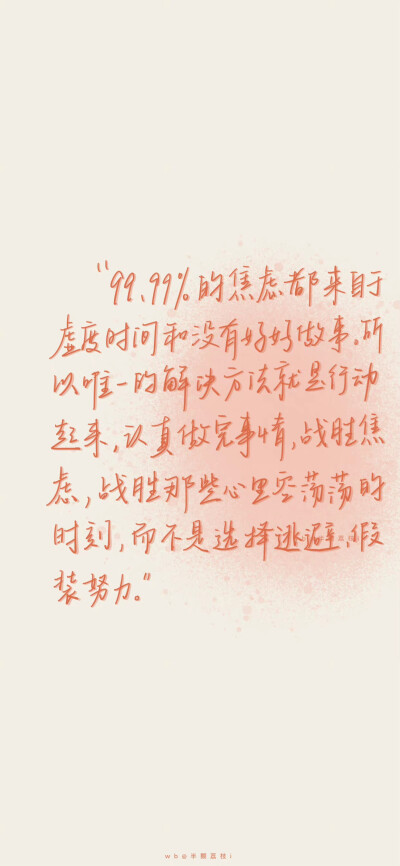 “99.99%的焦虑都来自于
虚度时间和没有好好做事。所
以唯一的解决方法就是行动
起来,认真做完事情,战胜焦
虑,战胜那些心里空荡荡的
时刻,而不是选择逃避、假
装努力。”
wb@半颗荔枝i